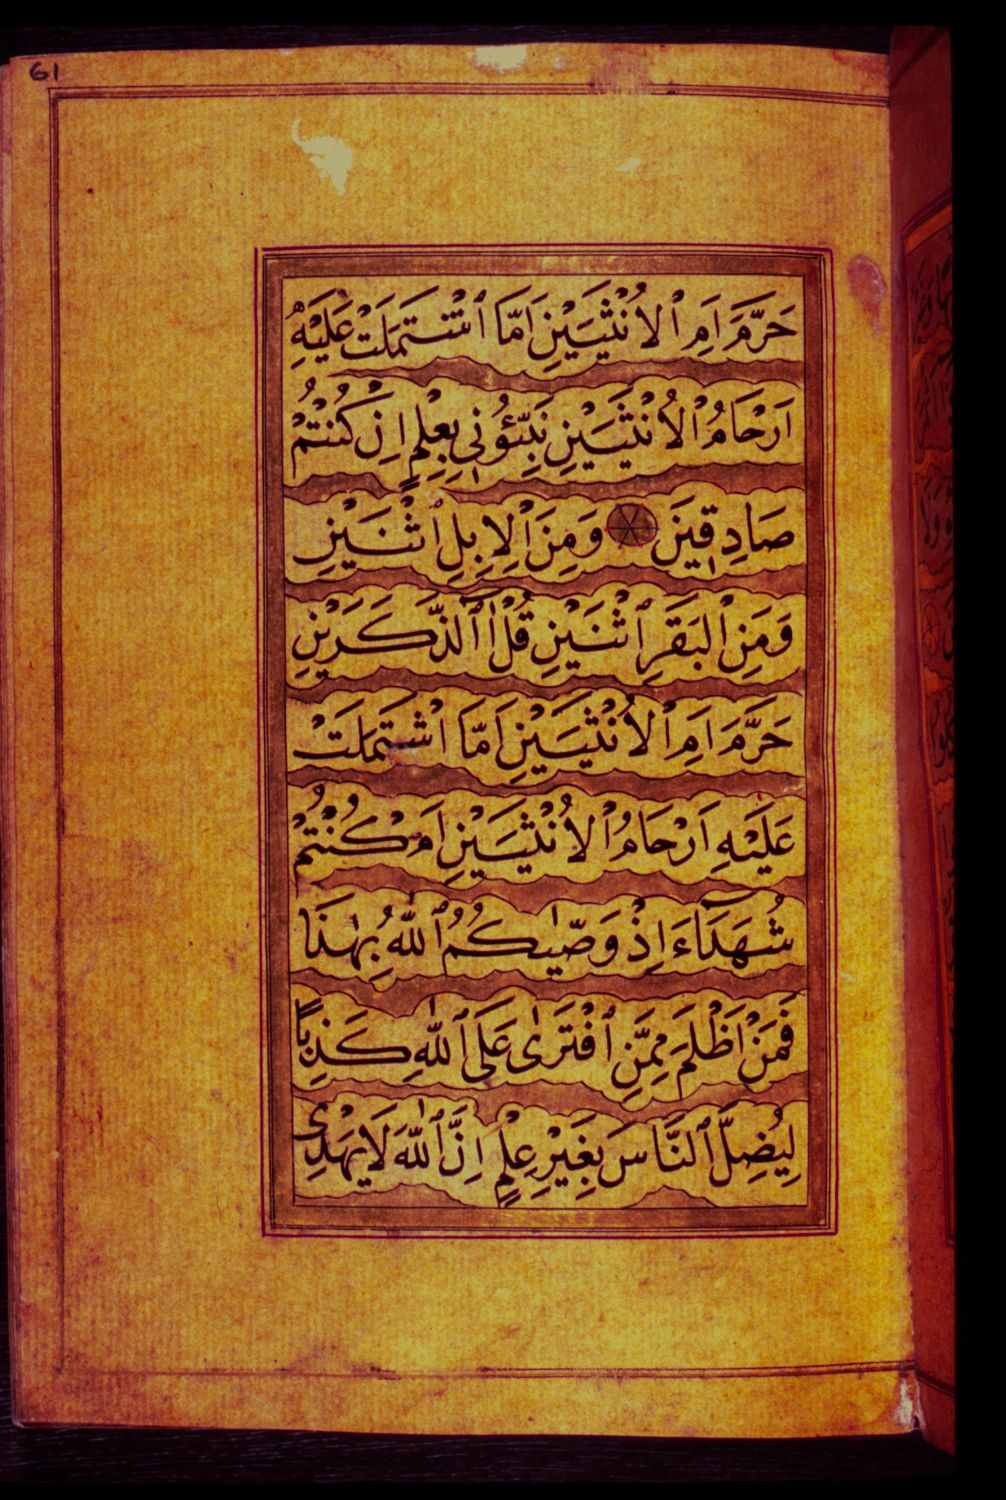 61
حَرَّمَ اَمِ ٱلْاُنْثَيَيْنِ اَمَّا ٱشْتَمَلَتْ عَلَيْهِ
اَرْحَامُ ٱلْاُنْثَيَيْنِ نَبِّـُٔونِى بِعِلْمٍ اِنْ كُنْتُمْ
صَادِقِينَ وَمِنَ ٱلْاِبِلِ ٱثْنَيْنِ
وَمِنَ ٱلْبَقَرِ ٱثْنَيْنِ قُلْ آٰلذَّكَرَيْنِ
حَرَّمَ اَمِ ٱلْاُنْثَيَيْنِ اَمَّا ٱشْتَمَلَتْ
عَلَيْهِ اَرْحَامُ ٱلْاُنْثَيَيْنِ اَمْ كُنْتُمْ
شُهَدَآءَ اِذْ وَصّٰيكُمُ ٱللّٰهُ بِهٰذَا
فَمَنْ اَظْلَمُ مِمَّنِ ٱفْتَرٰى عَلَى ٱللّٰهِ كَذِبًا
لِيُضِلَّ ٱلنَّاسَ بِغَيْرِ عِلْمٍ اِنَّ ٱللّٰهَ لَا يَهْدِى